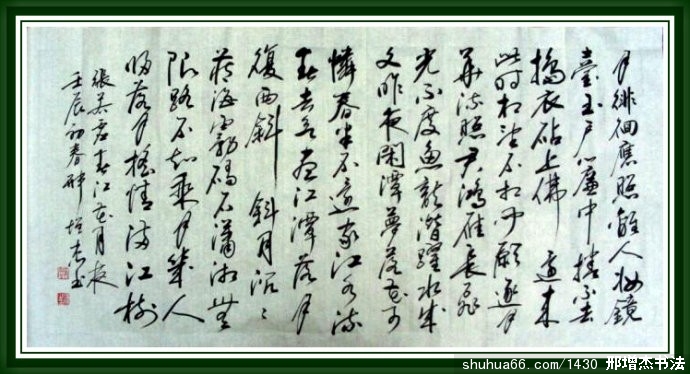 月徘徊應照離人妝鏡
臺玉戶簾中捲不去
搗衣砧上拂還來
此时相望不相聞願逐月
華流照君鴻雁長飛
光不度魚龍潛躍水成
文昨夜閑潭夢落花可
憐春半不還家江水流
春去欲盡江潭落月
復西斜 斜月沉々
藏海霧碣石瀟湘無
限路不知乘月幾人
歸落月搖情滿江樹
張若虛春江花月夜
壬辰初春邢增杰书
shuhua66.com/1430 邢增杰书法